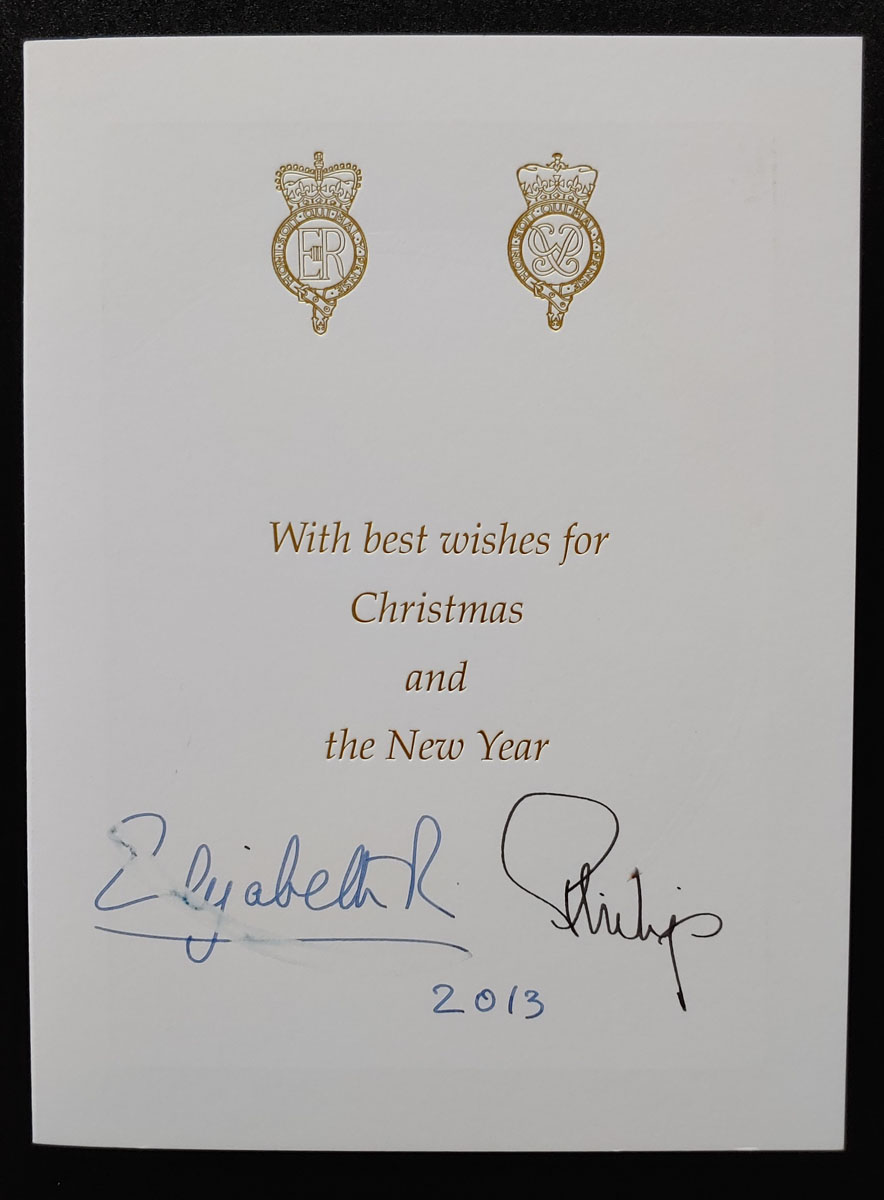 HONI · SOIT · QUI · MAL · Y · PENSE
EIIR
HONI · SOIT · QUI · MAL · Y · PENSE
With best wishes for
Christmas
and
the New Year
Elizabeth R
Philip
2013